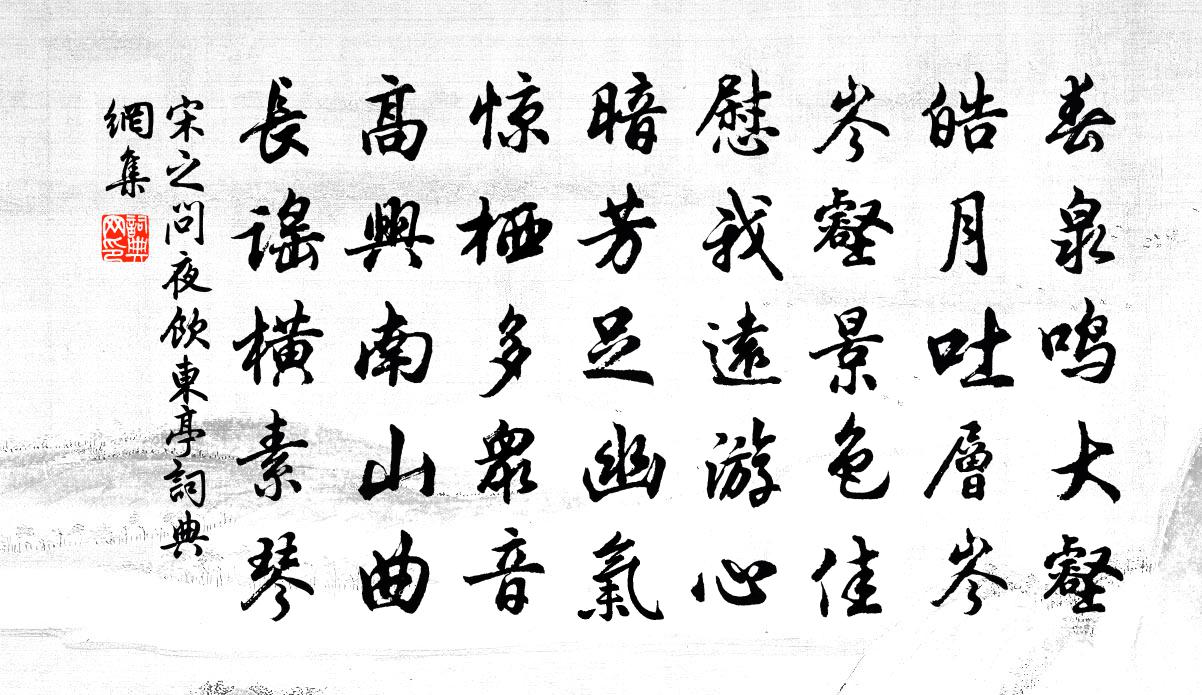 春泉鳴大壑
皓月吐層岑
岑壑景色佳
慰我遠游心
暗芳足幽氣
惊栖多眾音
高興南山曲
長謠橫素琴
宋之问夜飲東亭詞典
網集
詞典
网印